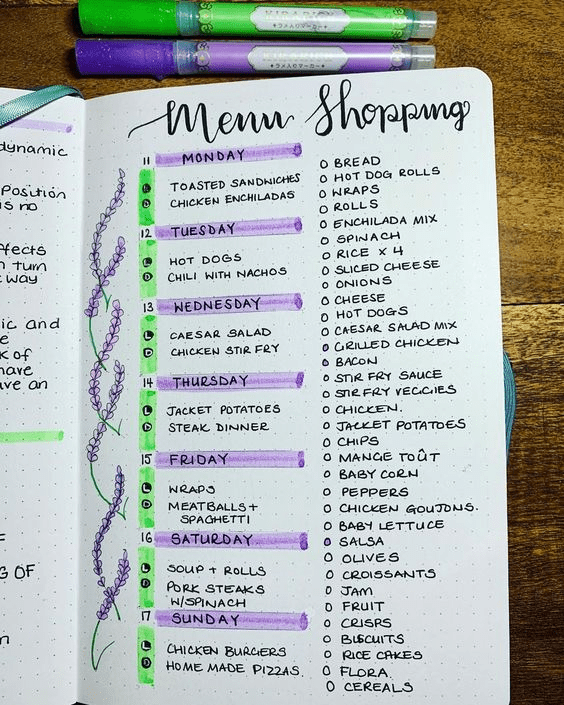 dynamic
Position
is no
effects
turn
way
ic and
e
k of
have
ave an
G OF
Menu
11 MONDAY
L TOASTED SANDWICHES
D CHICKEN ENCHILADAS
12 TUESDAY
L HOT DOGS
D CHILI WITH NACHOS
13 WEDNESDAY
L CAESAR SALAD
D CHICKEN STIR FRY
14 THURSDAY
L JACKET POTATOES
D STEAK DINNER
15 FRIDAY
L WRAPS
D MEATBALLS +
SPAGHETTI
16 SATURDAY
L SOUP + ROLLS
D PORK STEAKS
W/SPINACH
17 SUNDAY
L CHICKEN BURGERS
D HOME MADE PIZZAS.
Shopping
O BREAD
O HOT DOG ROLLS
O WRAPS
O ROLLS
O ENCHILADA MIX
O SPINACH
O RICE x 4
O SLICED CHEESE
O ONIONS
O CHEESE
O HOT DOGS
O CAESAR SALAD MIX
O GRILLED CHICKEN
O BACON
O STIR FRY SAUCE
O STIR FRY VEGGIES
O CHICKEN.
O JACKET POTATOES
O CHIPS
O MANGE TOÛT
O BABY CORN
O PEPPERS
O CHICKEN GOUJONS.
O BABY LETTUCE
O SALSA
O OLIVES
O CROISSANTS
O JAM
O FRUIT
O CRISPS
O BISCUITS
O RICE CAKES
O FLORA.
O CEREALS